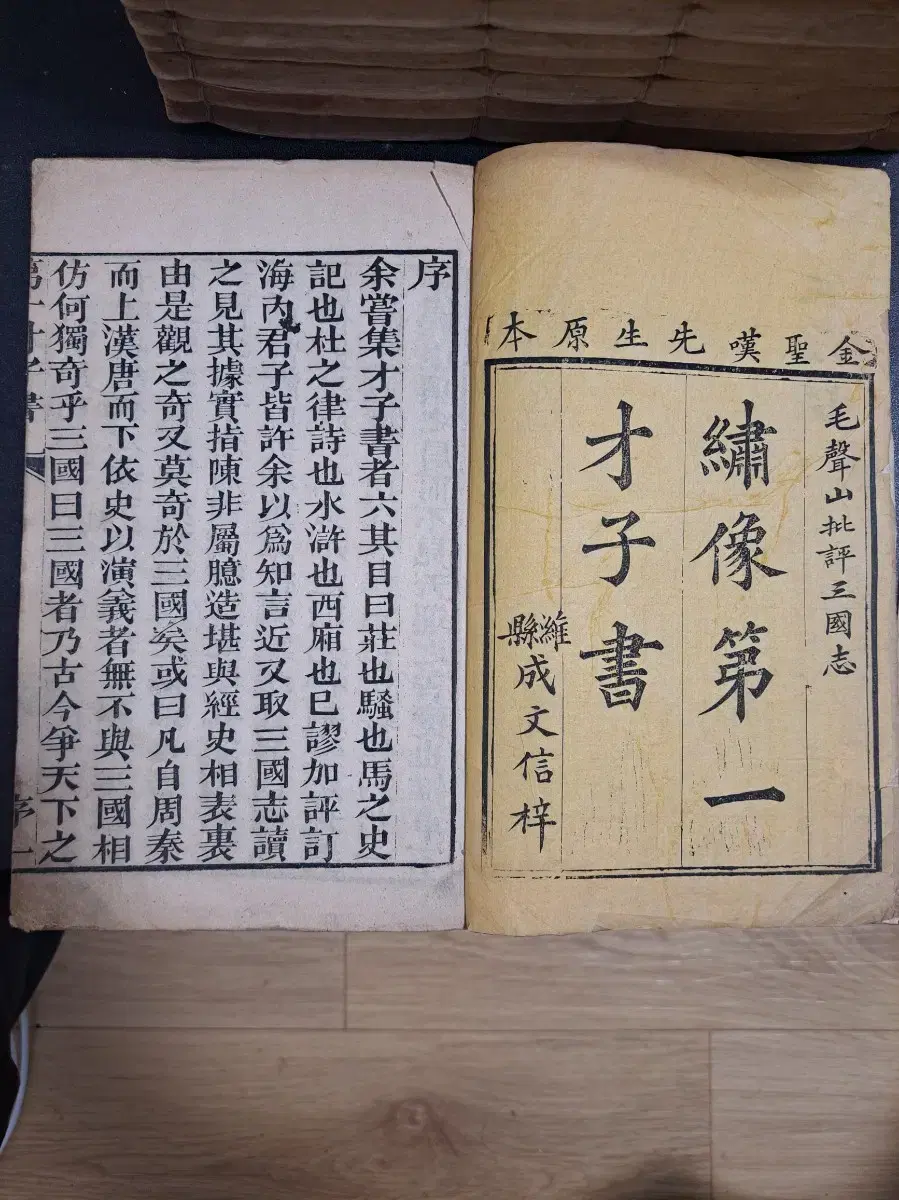 金聖嘆先生原本
毛聲山批評三國志
繡像第一
才子書
濰縣成文信梓
序
余嘗集才子書者六其目曰莊也騷也馬之史
記也杜之律詩也水滸也西廂也已謬加評訂
海內君子皆許余以爲知言近又取三國志讀
之見其據實指陳非屬臆造堪與經史相表裏
由是觀之奇又莫奇於三國矣或曰凡自周秦
而上漢唐而下依史以演義者無不與三國相
仿何獨奇乎三國曰三國者乃古今爭天下之
第一才子書
序一